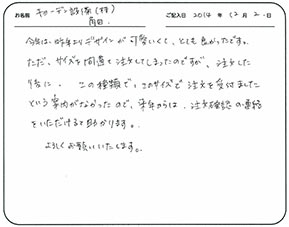 お名前 ガーデン設備(株) ご記入日 2014年12月2日
今年は、昨年よりデザインが可愛いくて、とても良かったです。
ただ、サイズを間違て注文してしまったのですが、注文した
時に、この種類で、このサイズで注文を受付ました
という案内がなかったので、来年からは、注文確認の連絡
をいただけると助かります。
よろしくお願いいたします。